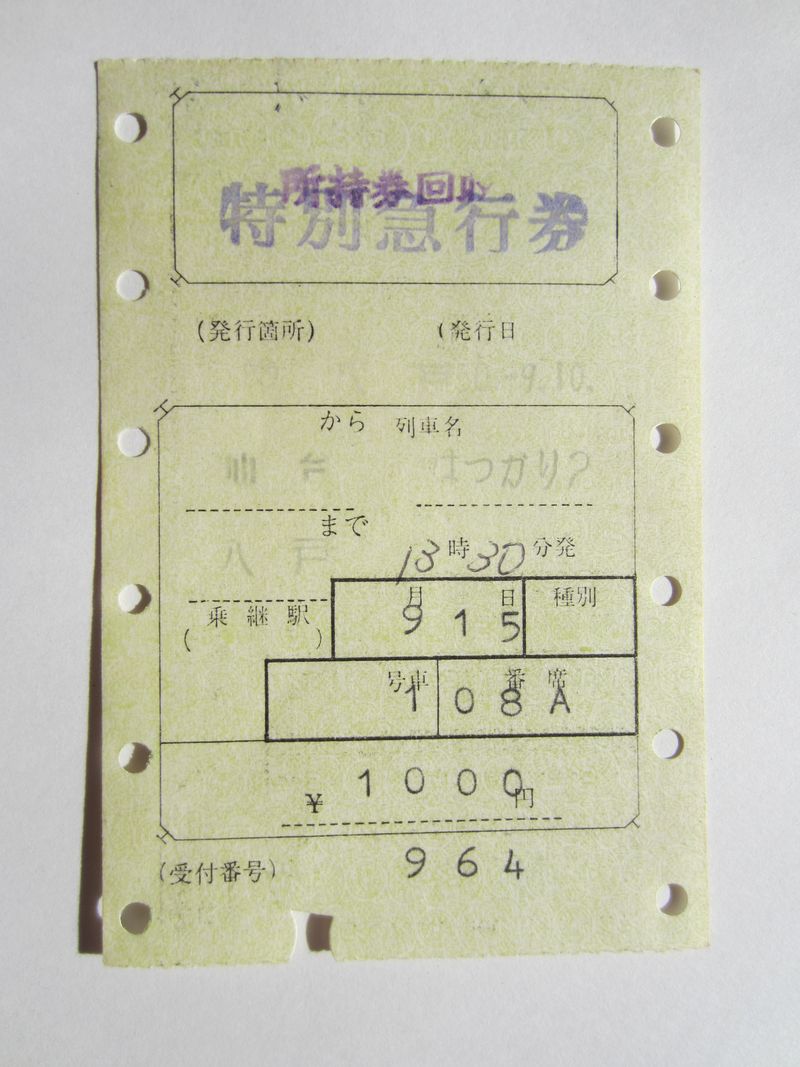 所持券回収
特別急行券
(発行箇所) (発行日
-9.10.
から 列車名
仙台 はつかり2
まで
八戸 13時30分発
月 日 種別
(乗継駅) 9 15
号車 番 席
1 08 A
¥ 1000円
(受付番号) 964